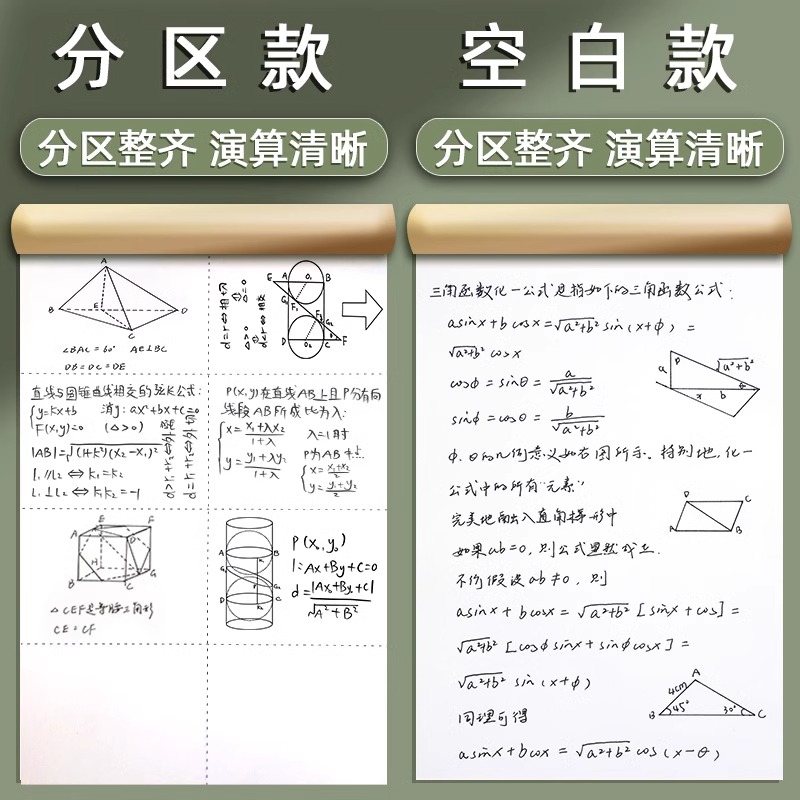 分区款
分区整齐 演算清晰
A
B
E
D
C
∠BAC=60° AE⊥BC
DB=DC=DE
E A O₁ B
G₁
F₁
F₂
G₂
D O₂ C F
d=r⇔相切
⇕
Δ=0
d<r⇔相交
⇕
Δ>0
直线与圆锥曲线相交的弦长公式:
{y=kx+b 消y: ax²+bx+c=0
F(x,y)=0 (Δ>0)
|AB|=√(1+k²)(x₂-x₁)²
l₁∥l₂⇔k₁=k₂
l₁⊥l₂⇔k₁k₂=-1
P(x,y)在直线AB上且P分有向
线段AB所成比为λ:
{x=(x₁+λx₂)/(1+λ) λ=1时
y=(y₁+λy₂)/(1+λ) P为AB中点
{x=(x₁+x₂)/2
y=(y₁+y₂)/2
E F
A D
H G
B C
△CEF是等腰三角形
CE=CF
A B
D C
P(x₀,y₀)
l=Ax+By+C=0
d=|Ax₀+By₀+C|/√A²+B²
空白款
分区整齐 演算清晰
三角函数化一公式是指如下的三角函数公式:
asinx+bcosx=√a²+b² sin(x+φ)=
√a²+b² cosx
cosφ=sinθ=a/√a²+b²
sinφ=cosθ=b/√a²+b²
a
√a²+b²
x b
φ、θ的几何意义如右图所示。特别地,化一
公式中的所有"元素"
完美地画出入直角梯形中
D C
A B
如果ab=0,则公式显然成立.
不妨假设ab≠0,则
asinx+bcosx=√a²+b²[sinx+cos]=
√a²+b²[cosφsinx+sinφcosx]=
√a²+b² sin(x+φ)
A
4cm
B 45° 30° C
同理可得
asinx+bcosx=√a²+b² cos(x-θ)